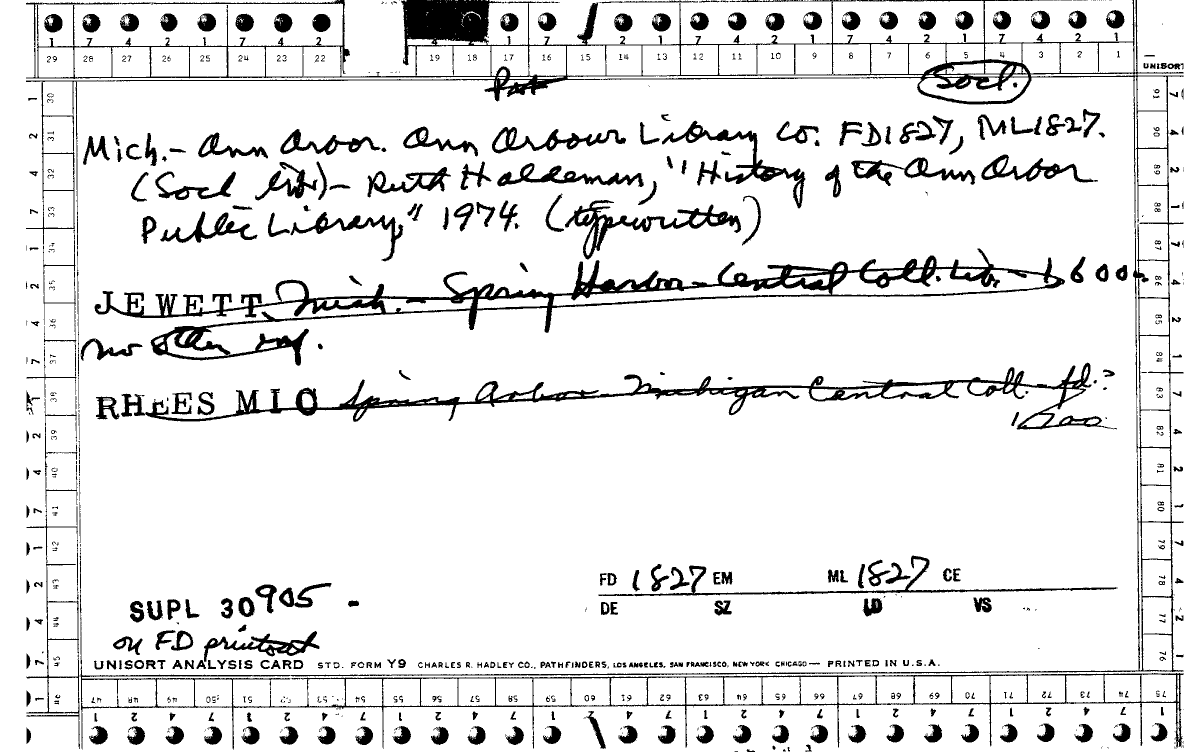 1 7 4 2 1 7 4 2 4 2 1 7 4 2 1 7 4 2 1 7 4 2 1 7 4 2 1
29 28 27 26 25 24 23 22 19 18 17 16 15 14 13 12 11 10 9 8 7 6 5 4 3 2 1
UNISORT
Pat
Socl.
Mich. - Ann Arbor. Ann Arbour Library Co. FD1827, ML1827.
(Socl lib) - Ruth Haldeman, "History of the Ann Arbor
Public Library," 1974. (typewritten)
JEWETT Mich. - Spring Harbor - Central Coll. Lib. - 1600
no other inf.
RHEES MIC Spring Arbor - Michigan Central Coll - fd.?
FD 1827 EM ML 1827 CE
DE SZ LD VS
SUPL 30905 -
on FD printout
UNISORT ANALYSIS CARD STD. FORM Y9 CHARLES R. HADLEY CO., PATHFINDERS, LOS ANGELES, SAN FRANCISCO, NEW YORK CHICAGO — PRINTED IN U.S.A.
47 48 49 50 51 52 53 54 55 56 57 58 59 60 61 62 63 64 65 66 67 68 69 70 71 72 73 74 75